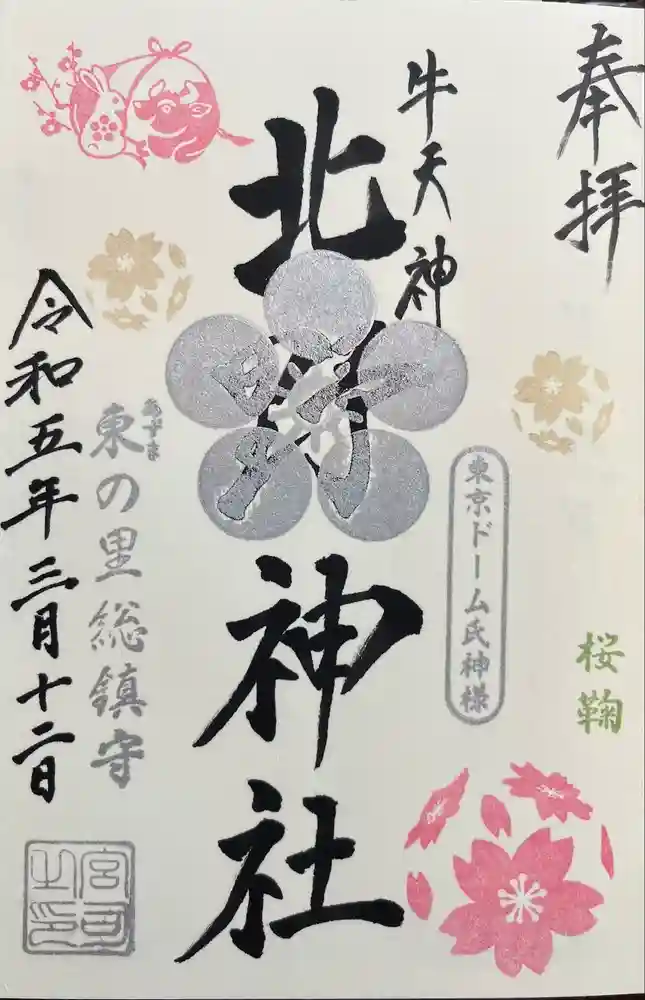 奉拝
牛天神
北野神社
東京ドーム氏神様
桜鞠
あずま
東の里総鎮守
令和五年三月十二日
宮司之印